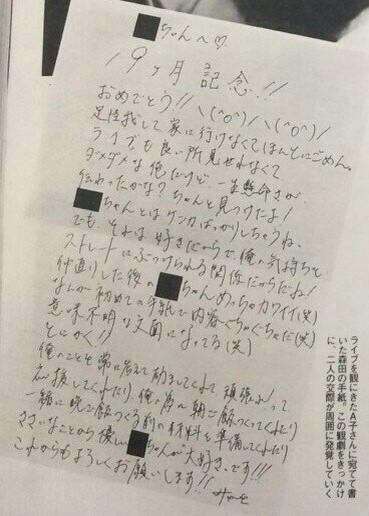 ■ちゃんへ♡
19ヶ月記念!!
おめでとう!! \(^o^)/ \(^o^)/
足怪我して家に行けなくてほんとにごめん。
ライブも良い所見せれなくて
ダメダメな俺だけど、一生懸命さが
伝わったかな?ちゃんと見つけたよ!
■ちゃんとはケンカばっかりしちゃうね、
でも、それは好きだからで、俺の気持ちを
ストレートにぶつけられる関係だからだよね!
仲直りした後の■ちゃんめっちゃカワイイ(笑)
なんか初めての手紙で内容ぐちゃぐちゃだ(笑)
意味不明な文面になってる(笑)
とにかく!!
俺のことを常に考えて動いてくれて頑張よって
応援してくれたり、俺の為に朝ご飯つくってくれたり
一緒に晩ご飯つくる前の材料を準備してくれたり
ママいなことから優しい■ちゃんが大好きです!!!
これからもよろしくお願いします!!
ライブを観にきたA子さんに宛てて書
いた森田の手紙。この観劇をきっかけ
に、二人の交際が周囲に発覚していく